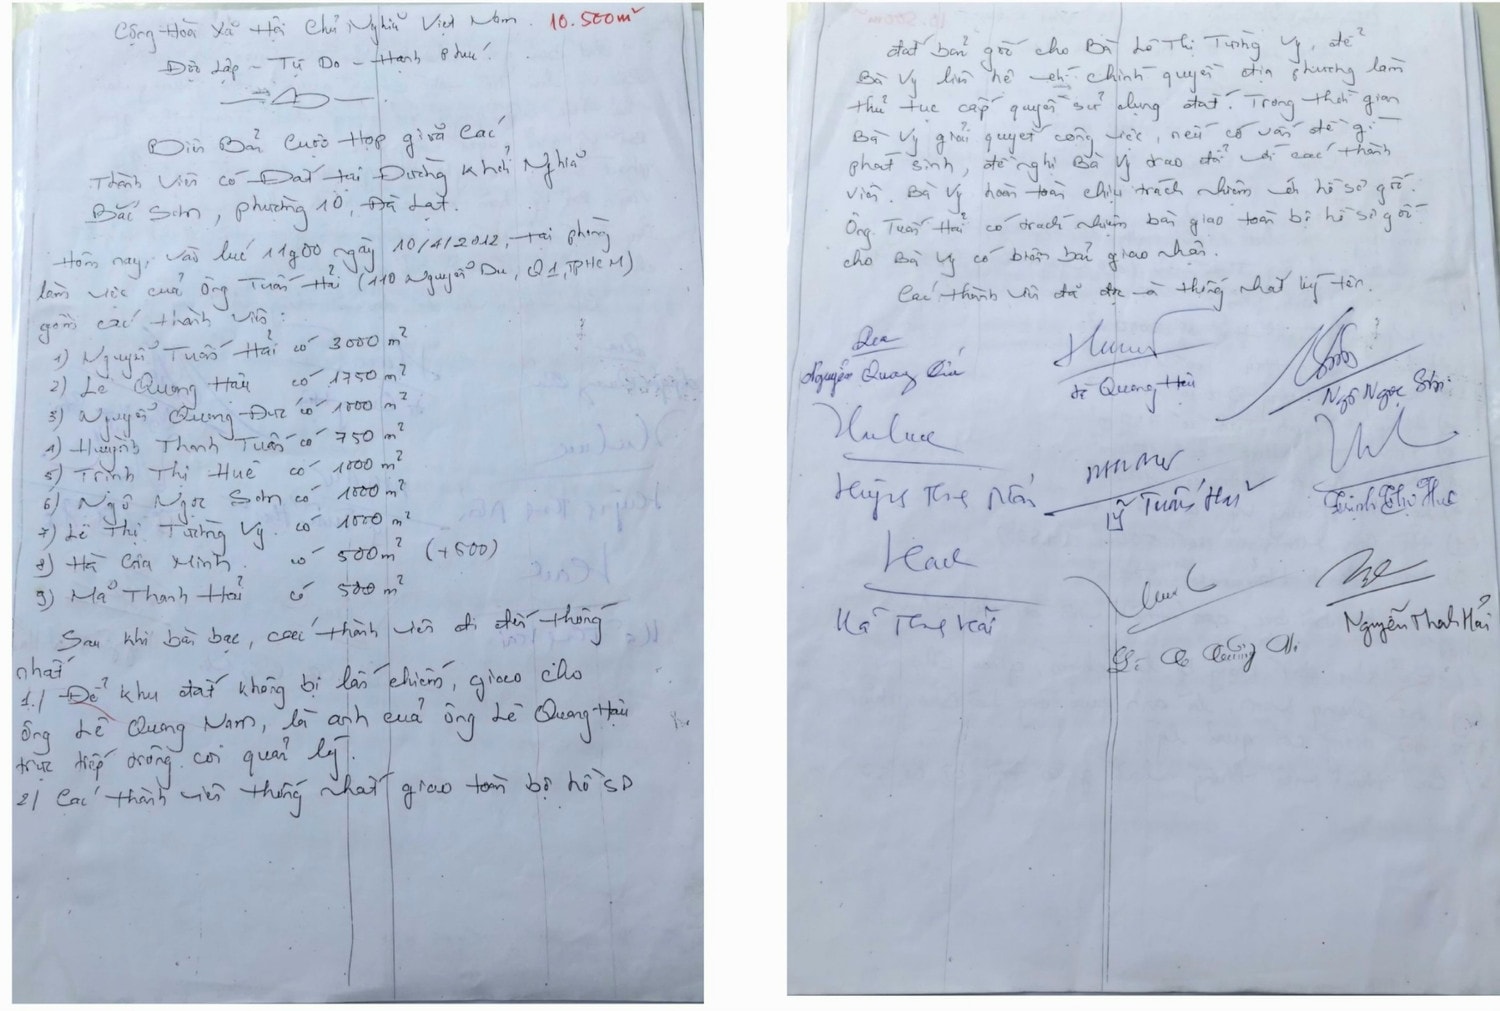 Cộng Hòa Xã Hội Chủ Nghĩa Việt Nam. 10.500m²
Độc Lập - Tự Do - Hạnh phúc.
Biên Bản Cuộc Họp giữa Các
Thành Viên có Đất tại Đường Khởi Nghĩa
Bắc Sơn, phường 10, Đà Lạt.
Hôm nay, vào lúc 11g00 ngày 10/4/2012, tại phòng
làm việc của Ông Tuấn Hải (110 Nguyễn Du, Q1, TPHCM)
gồm các thành viên:
1) Nguyễn Tuấn Hải có 3000 m²
2) Lê Quang Hậu có 1750 m²
3) Nguyễn Quang Đức có 1000 m²
4) Huỳnh Thanh Tuấn có 750 m²
5) Trịnh Thị Huê có 1000 m²
6) Ngô Ngọc Sơn có 1000 m²
7) Lê Thị Tường Vy có 1000 m²
8) Hà Minh có 500m² (+500)
9) Mã Thanh Hải có 500 m²
Sau khi bàn bạc, các thành viên đi đến thống
nhất
1./ Để khu đất không bị lấn chiếm, giao cho
Ông Lê Quang Nam, là anh của Ông Lê Quang Hậu
trực tiếp trông coi quản lý.
2/ Các thành viên thống nhất giao toàn bộ hồ sơ
đất bản gốc cho Bà Lê Thị Tường Vy, để
Bà Vy liên hệ chính quyền địa phương làm
thủ tục cấp quyền sử dụng đất. Trong thời gian
Bà Vy giải quyết công việc, nếu có vấn đề gì
phát sinh, đề nghị Bà Vy trao đổi với các thành
viên. Bà Vy hoàn toàn chịu trách nhiệm với hồ sơ gốc.
Ông Tuấn Hải có trách nhiệm bàn giao toàn bộ hồ sơ gốc
cho Bà Vy có biên bản giao nhận.
Các thành viên đã đọc và thống nhất ký tên.
Nguyễn Quang Lê Quang Hậu Ngô Ngọc Sơn
Tuấn Hải Trịnh Thị Huê
Nguyễn Thanh Hải